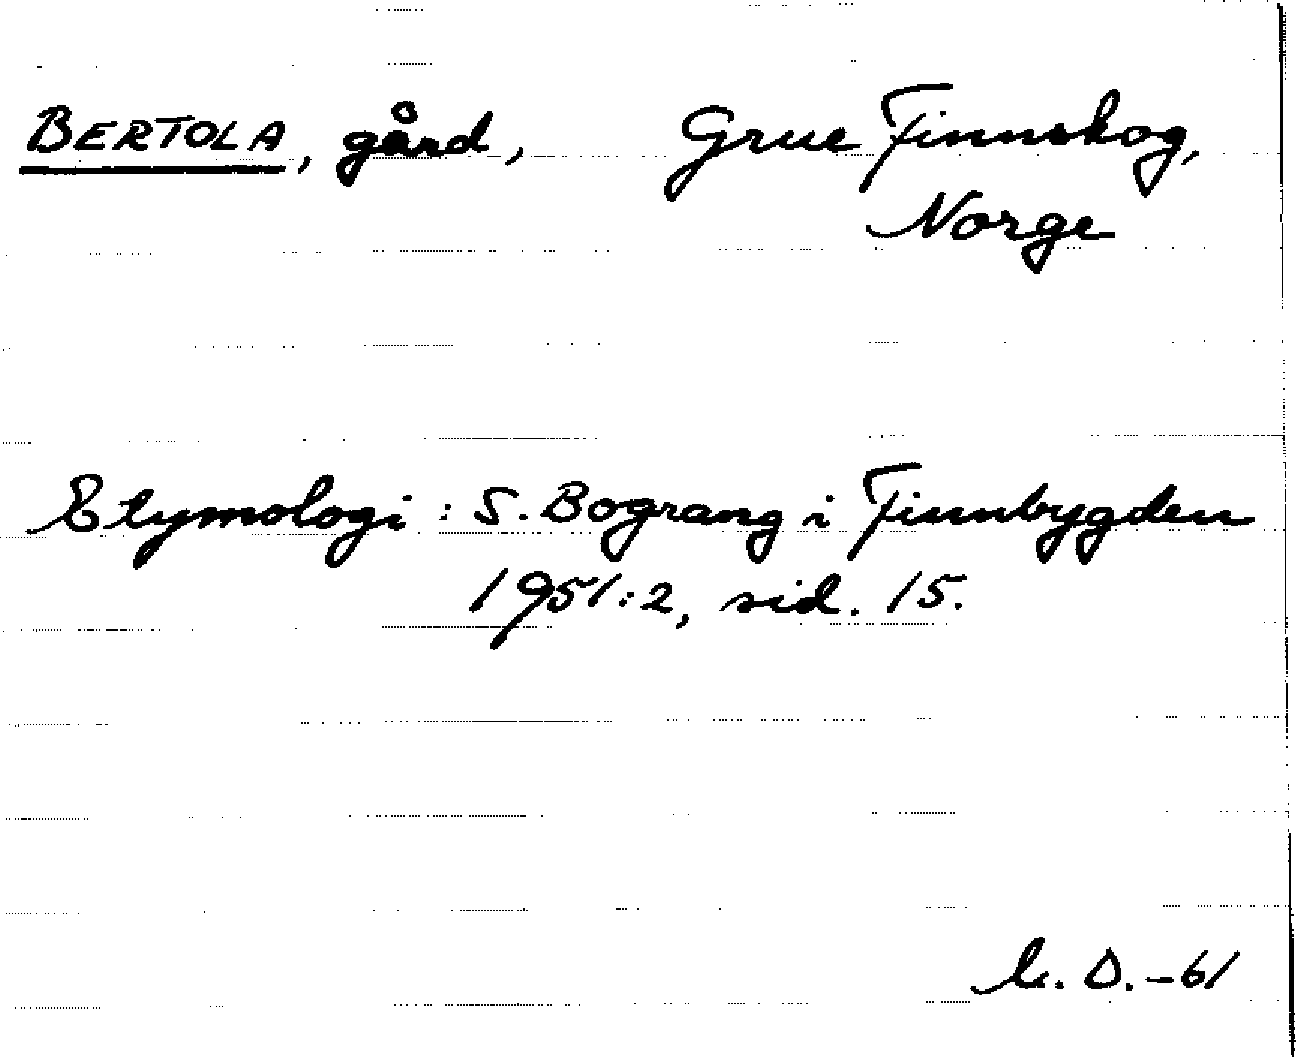 BERTOLA, gård, Grue Finnskog,
Norge
Etymologi: S. Bograng i Finnbygden
1951:2, sid. 15.
D. -61